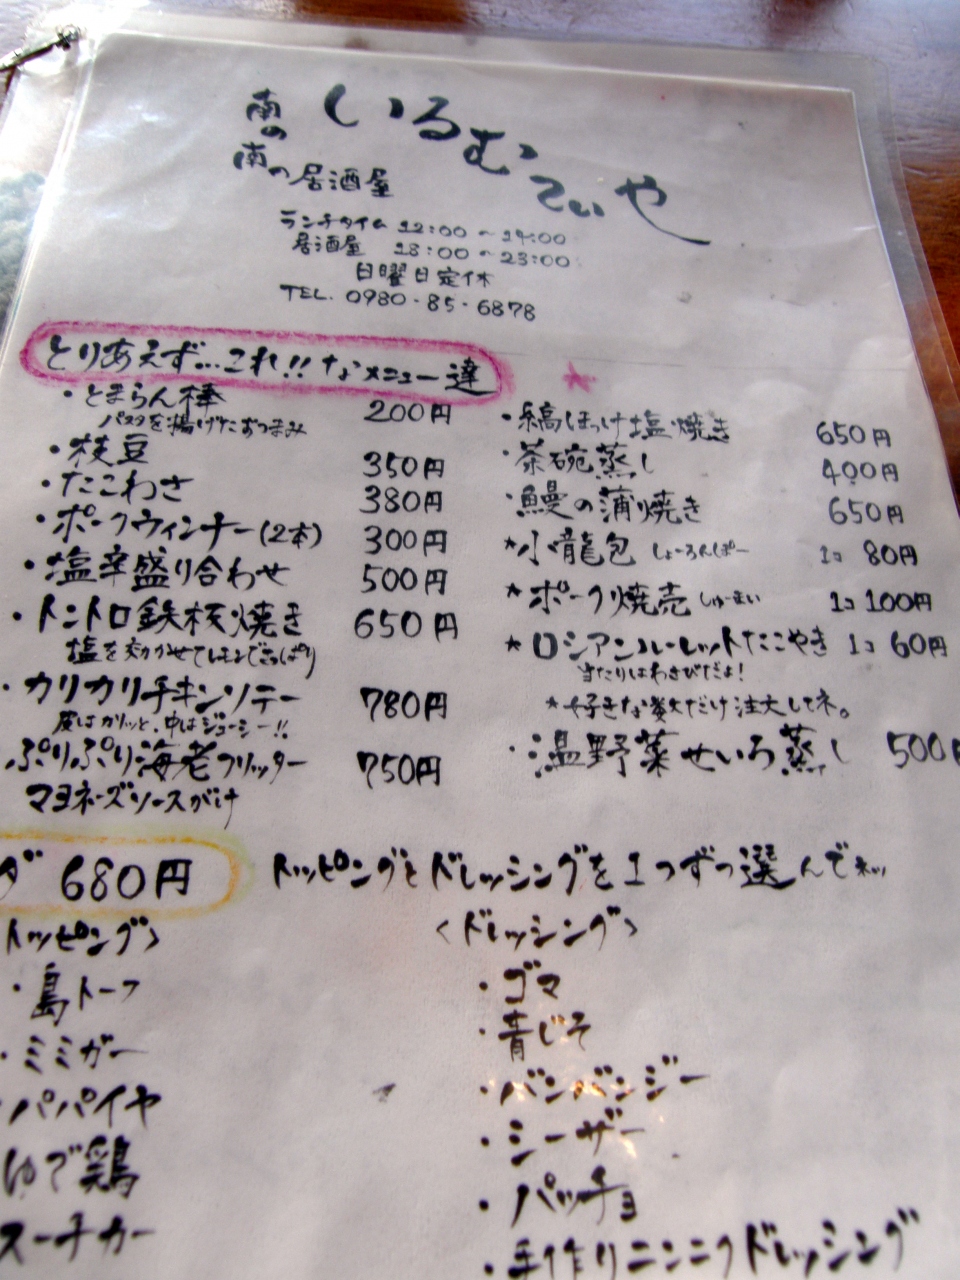 南の
南の居酒屋
いるむてぃや
ランチタイム 12:00~14:00
居酒屋 18:00~23:00
日曜日定休
TEL. 0980-85-6878
とりあえず…これ!!なメニュー達
・とまらん棒 200円
パスタを揚げたおつまみ
・枝豆 350円
・たこわさ 380円
・ポークウィンナー(2本) 300円
・塩辛盛り合わせ 500円
・トントロ鉄板焼き 650円
塩を効かせてレモンでさっぱり
・カリカリチキンソテー 780円
皮はカリッと、中はジューシー!!
ぷりぷり海老フリッター 750円
マヨネーズソースがけ
・縞ほっけ塩焼き 650円
・茶碗蒸し 400円
・鰻の蒲焼き 650円
*小龍包 しょーろんぽー 1コ 80円
*ポーク焼売 しゅーまい 1コ 100円
*ロシアンルーレットたこやき 1コ 60円
当たりはわさびだよ!
*好きな数だけ注文してネ。
・温野菜せいろ蒸し 500円
ダ 680円
トッピングとドレッシングを1つずつ選んでネッ
トッピング>
・島トーフ
・ミミガー
・パパイヤ
ゆで鶏
スーチカー
<ドレッシング>
・ゴマ
・青じそ
・バンバンジー
・シーザー
・パッチョ
・手作りニンニクドレッシング